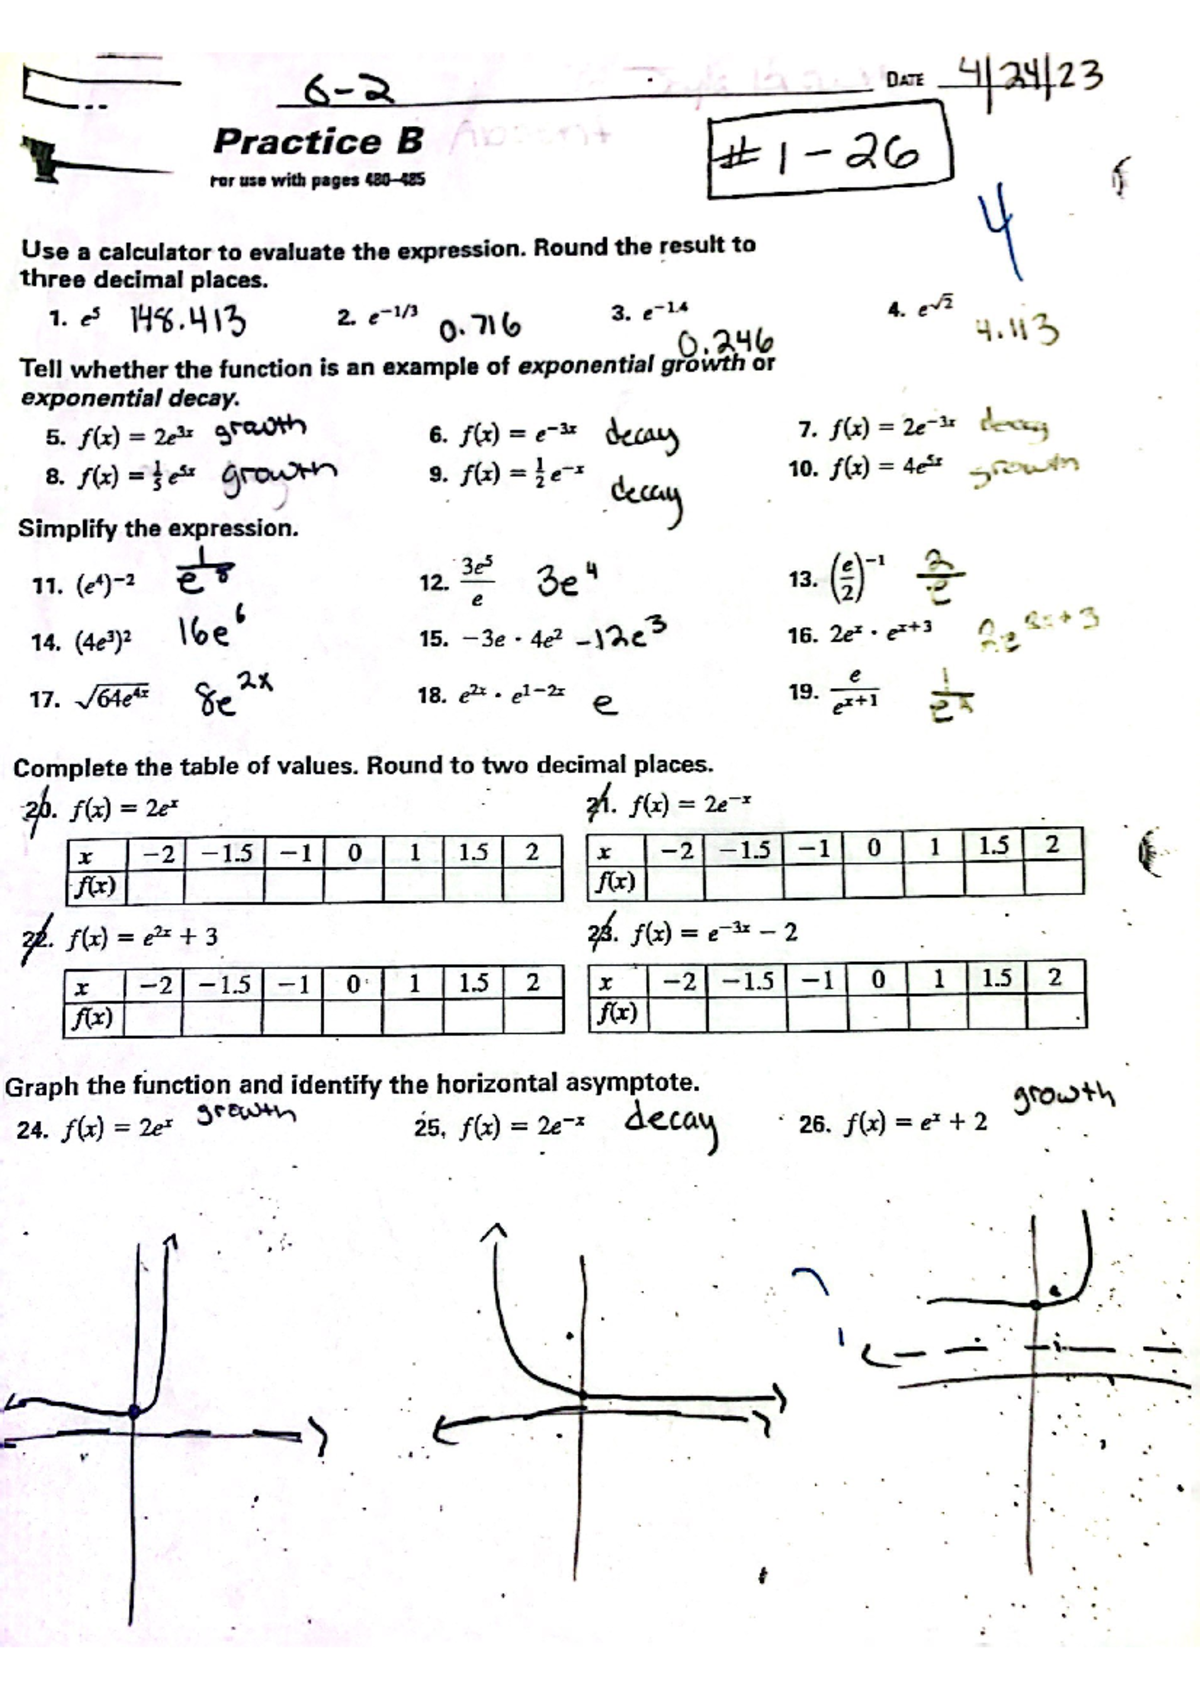 6-2 DATE 4/24/23
Practice B #1-26
For use with pages 480–485
4
Use a calculator to evaluate the expression. Round the result to
three decimal places.
1. e⁵ 148.413 2. e^(−1/3) 0.716 3. e^(−1.4) 0.246 4. e^√2 4.113
Tell whether the function is an example of exponential growth or
exponential decay.
5. f(x) = 2e^(3x) growth 6. f(x) = e^(−3x) decay 7. f(x) = 2e^(−3x) decay
8. f(x) = 1/3 e^(5x) growth 9. f(x) = 1/2 e^(−x) decay 10. f(x) = 4e^(5x) growth
Simplify the expression.
11. (e⁴)^(−2) 1/e⁸ 12. 3e⁵/e 3e⁴ 13. (e/2)^(−1) 2/e
14. (4e³)² 16e⁶ 15. −3e · 4e² −12e³ 16. 2e^x · e^(x+3)
17. √(64e^(4x)) 8e^(2x) 18. e^(2x) · e^(1−2x) e 19. e/e^(x+1) 1/e^x
Complete the table of values. Round to two decimal places.
20. f(x) = 2e^x 21. f(x) = 2e^(−x)
x −2 −1.5 −1 0 1 1.5 2 x −2 −1.5 −1 0 1 1.5 2
f(x) f(x)
22. f(x) = e^(2x) + 3 23. f(x) = e^(−3x) − 2
x −2 −1.5 −1 0 1 1.5 2 x −2 −1.5 −1 0 1 1.5 2
f(x) f(x)
Graph the function and identify the horizontal asymptote.
24. f(x) = 2e^x growth 25. f(x) = 2e^(−x) decay 26. f(x) = e^x + 2 growth